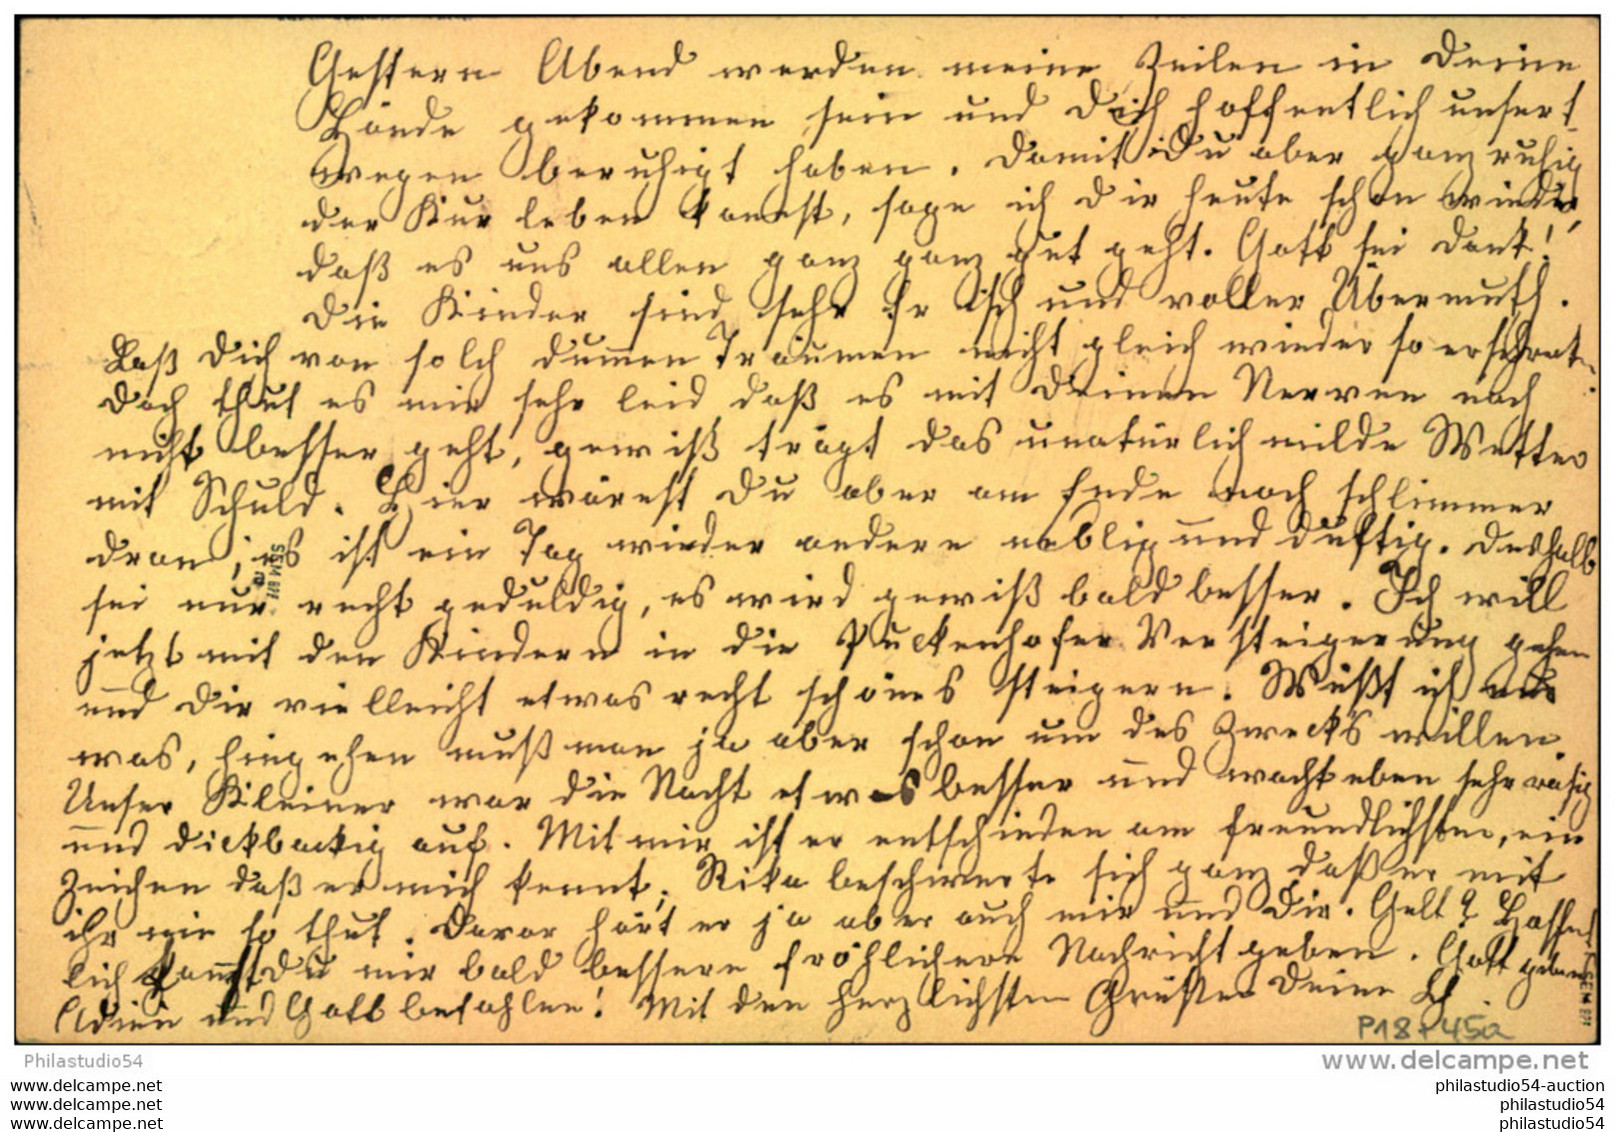 Gestern Abend werden meine Zeilen in Deine
Hände gekommen sein und Dich hoffentlich unsert-
wegen beruhigt haben. Damit Du aber ganz ruhig
der Kur leben kannst, sage ich Dir heute schon wieder,
daß es uns allen ganz ganz gut geht. Gott sei Dank!
Die Kinder sind sehr frisch und voller Übermuth.
Laß Dich von solch dummen Träumen nicht gleich wieder so
Doch thut es mir sehr leid daß es mit Deinen Nerven noch
nicht besser geht, gewiß trägt das unnatürlich milde Wetter
mit Schuld. Hier wärest Du aber am Ende noch schlimmer
dran, es ist ein Tag wieder andere neblig und duftig. Deshalb
sei nur recht geduldig, es wird gewiß bald besser. Ich will
jetzt mit den Kindern in die Puckenhofer Versteigerung gehen
und Dir vielleicht etwas recht schönes steigern. Wüßt ich nur
was, hingehen muß man ja aber schon um des Zwecks willen.
Unser Kleiner war die Nacht etwas besser und wacht eben sehr
und dickbackig auf. Mit mir ist er entschieden am freundlichsten, ein
Zeichen daß er mich kennt, Rika beschwerte sich ganz daß er mit
ihr nie so thut. Davor hört er ja aber auch mir und Dir. Gelt? Hoffent-
lich kannst Du mir bald bessere fröhlichere Nachricht geben. Gott gebe es
Adieu und Gott befohlen! Mit den herzlichsten Grüßen Deine
P18+45a
Philastudio54
www.delcampe.net
www.delcampe.net
www.delcampe.net
www.delcampe.net
philastudio54-auction
philastudio54
philastudio54